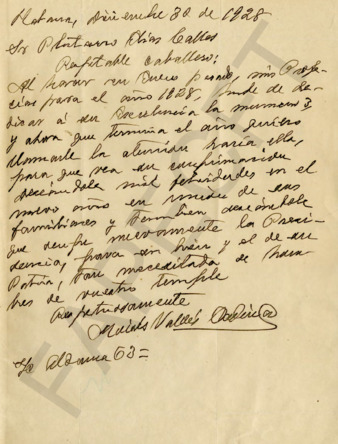 Habana, Diciembre 30 de 1928
Sr Plutarco Elías Calles
Respetable Caballero:
Al hacer en Enero pasado, mis Profe-
cías para el año 1928, hube de de-
dicar á su Excelencia la numero I
y ahora que termina el año quiero
llamarle la atención hacia ella,
para que vea su confirmación
deseándole mil felicidades en el
nuevo año en unión de sus
familiares y tambien deseándole
que ocupe nuevamente la Presi-
dencia, para su bien y el de su
Patria, tan necesitada de hom-
bres de vuestro temple
Respetuosamente
Valdés
Aldama 63=